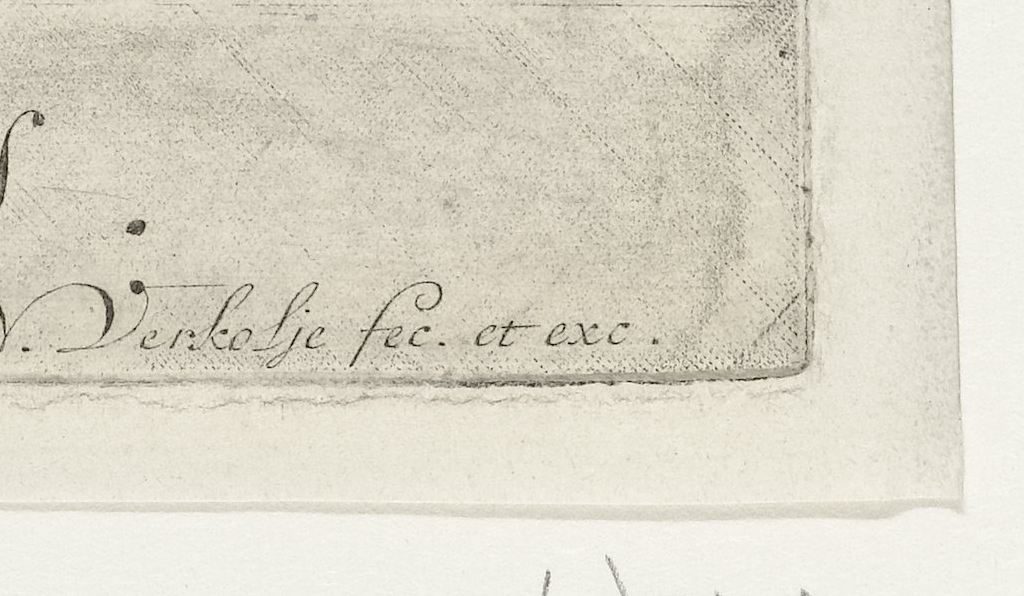 N. Verkolje fec. et exc.